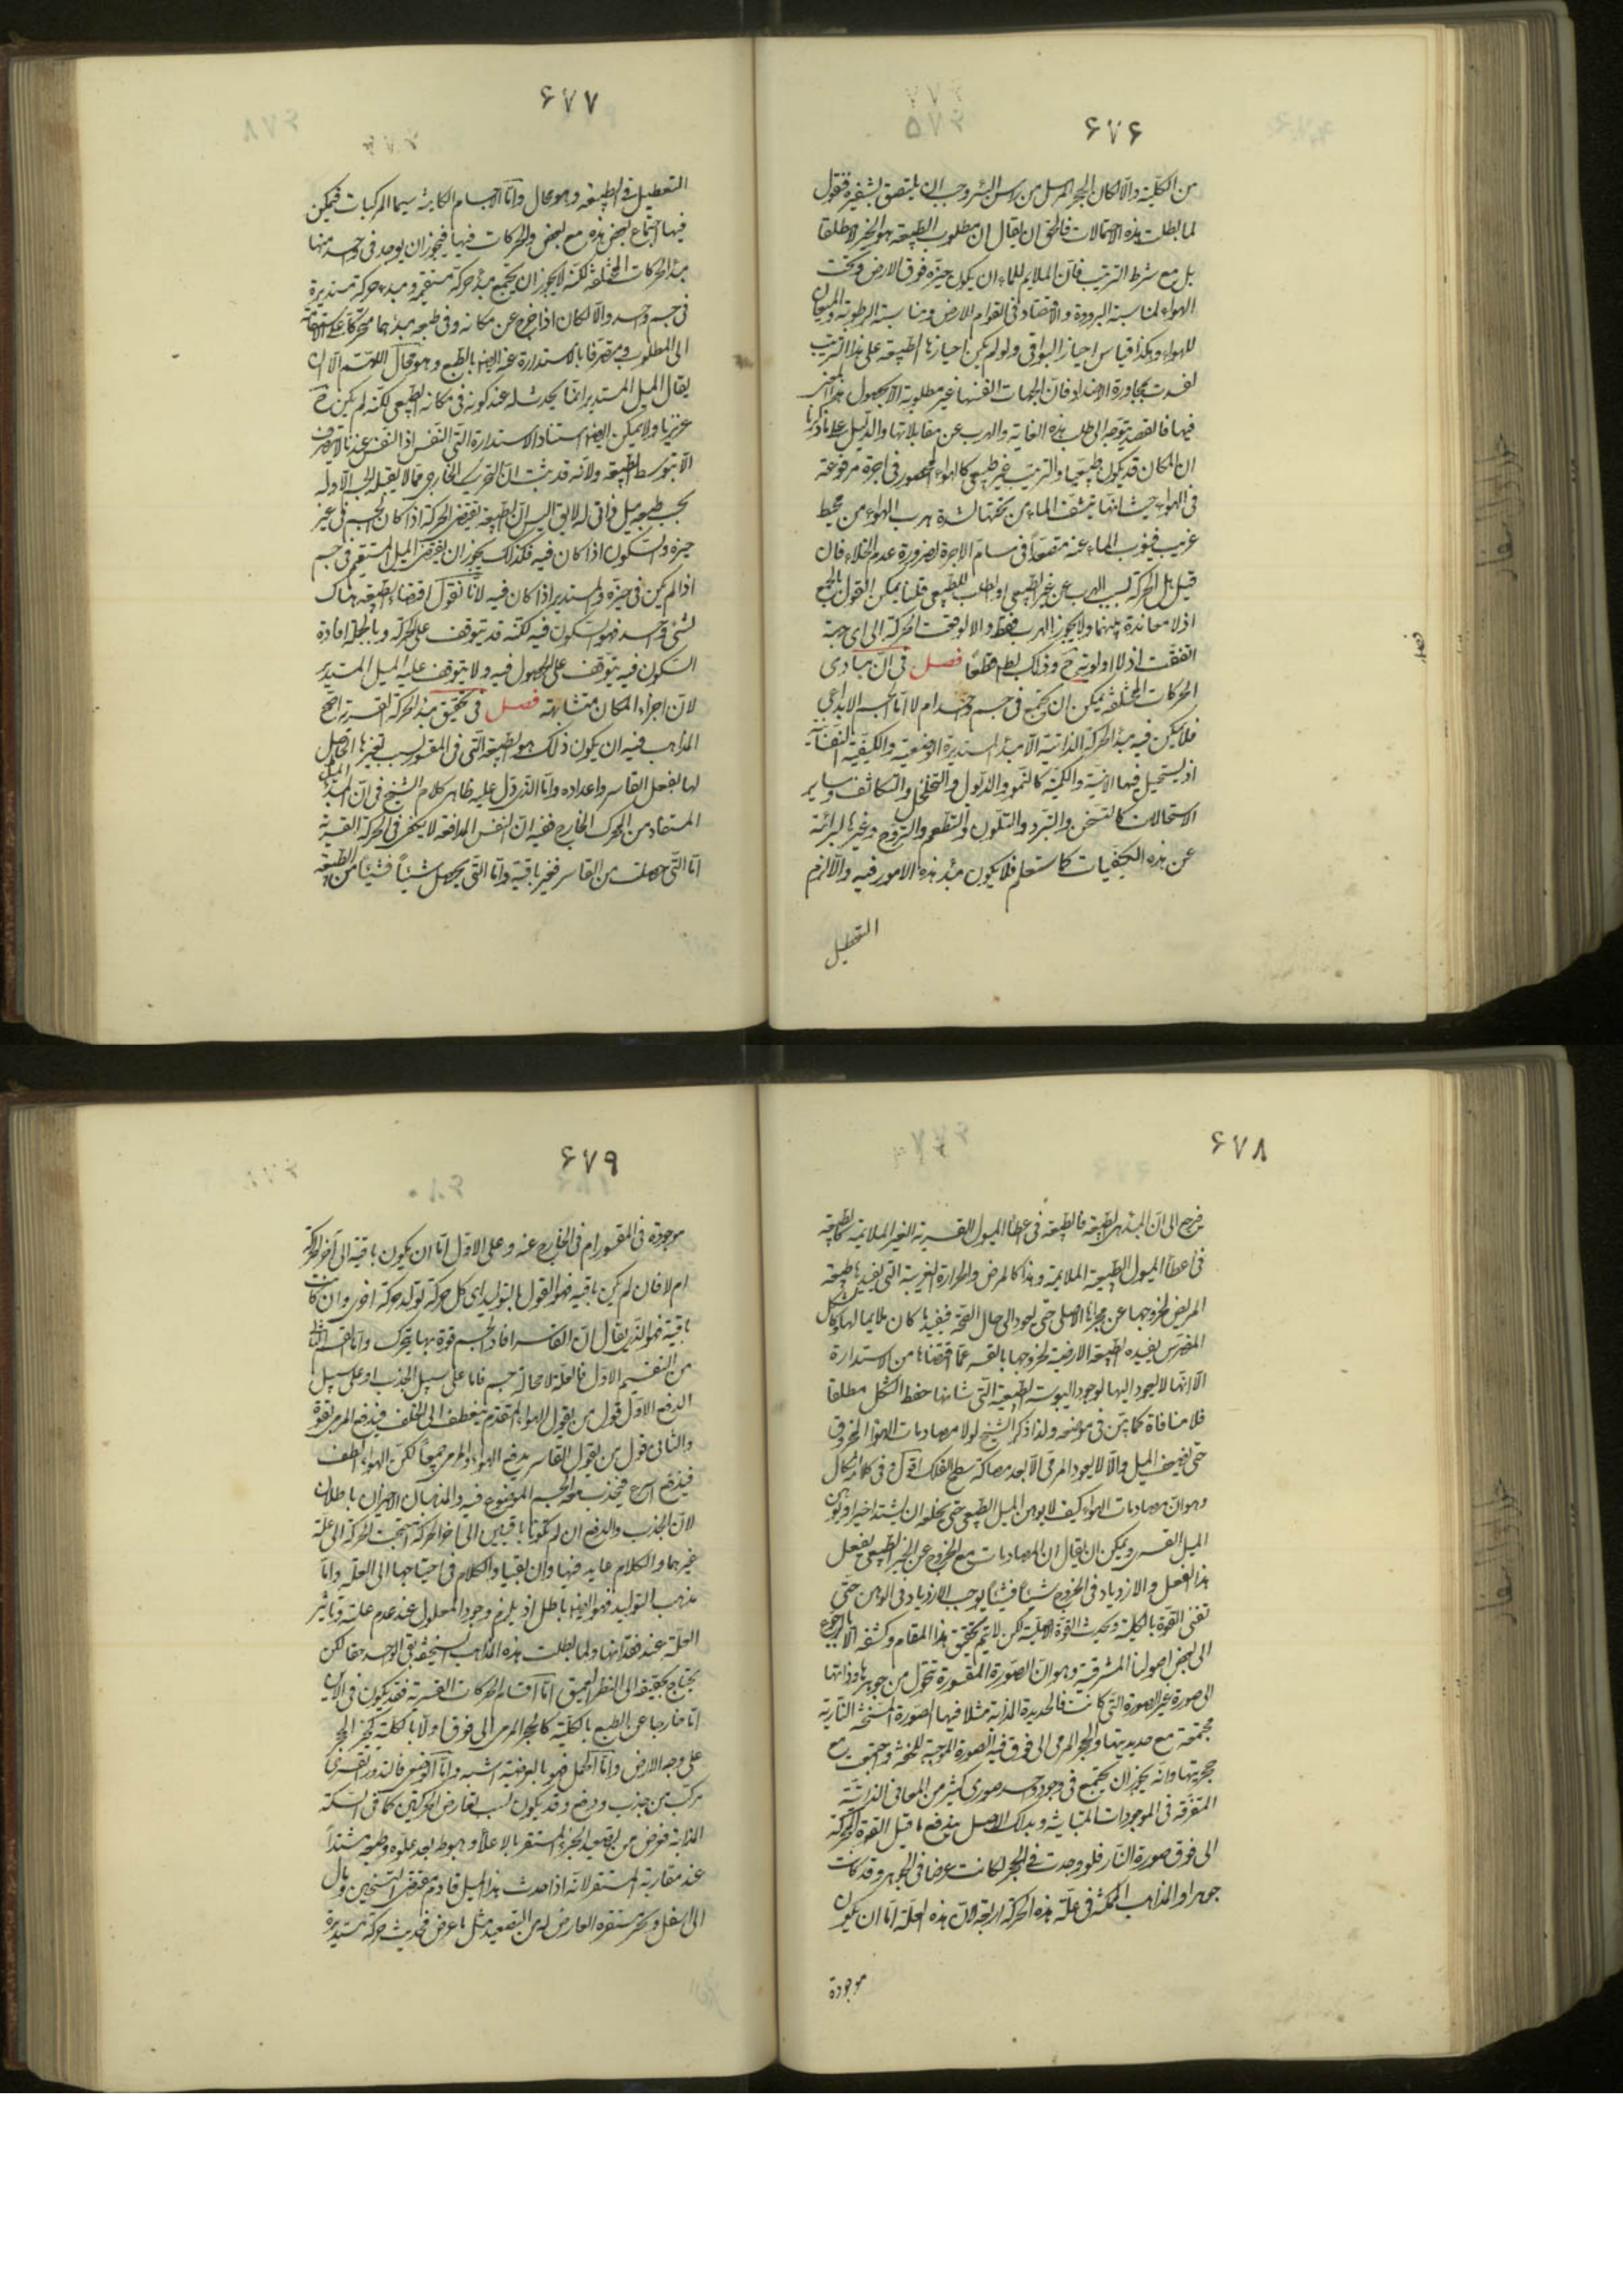 ۶۷۶
من الكلية والا لكان الحجر المرسل من راس البئر وجب ان يلتصق بشفيره فنقول
لما بطلت هذه الاحتمالات فالحق ان يقال ان مطلوب الطبيعة هو الحيز لا مطلقا
بل مع شرط الترتيب فان الملايم للماء ان يكون حيزه فوق الارض وتحت
الهواء لمناسبة البرودة والاقتصاد في القوام للارض ومناسبة الرطوبة والميعان
للهواء وهكذا قياس احياز البواقي ولو لم يكن احيازها الطبيعة على هذا الترتيب
لفسدت بمجاورة الاضداد فان الجهات انفسها غير مطلوبة الا بحصول هذا المعنى
فيها فالقصد يتوجه الى طلب هذه الغاية والهرب عن مقابلاتها والدليل على ما ذكرنا
ان المكان قد يكون طبيعيا والترتيب غير طبيعي كالهواء المحصور في اجرة مرفوعة
في الهواء حيث انها ينشف الماء من تحتها لشدة هرب الهواء من محيط
غريب فينوب الماء عنه متصعدا في مسام الاجرة لضرورة عدم الخلاء فان
قيل هل الحركة لسبب الهرب عن غير الطبيعي او لطلب للطبيعي قلنا يمكن القول بالجمع
اذ لا معاندة بينهما ولا يجوز الهرب فقط والا لوقعت الحركة الى اي جهة
اتفقت اذ لا اولوية ح وذلك بط قطعا فصل في ان مبادى
الحركات المختلفة يمكن ان تجتمع في جسم واحد ام لا اما الجسم الابداعي
فلا يمكن فيه مبدء الحركة الذاتية الا مبدء المستديرة الوضعية والكيفية النفسانية
اذ يستحيل فيها الاينية والكمية كالنمو والذبول والتخلخل والتكاثف وساير
الاستحالات كالتسخن والتبرد والتلون والتطعم والتروح وغيرها لبرائته
عن هذه الكيفيات كما ستعلم فلا يكون مبدء هذه الامور فيه والا لزم
التعطيل
۶۷۷
التعطيل في الطبيعة وهو محال واما الاجسام الكائنة سيما المركبات فيمكن
فيها اجتماع بعض هذه مع بعض والحركات فيها فيجوز ان يوجد في واحد منها
مبدء الحركات المختلفة لكنه لا يجوز ان يجتمع مبدء حركة مستقيمة ومبدء حركة مستديرة
في جسم واحد والا لكان اذا خرج عن مكانه وفي طبعه مبدئهما متحركا على الاستقامة
الى المطلوب ومنصرفا بالاستدارة عنه ايضا بالطبع وهو محال اللهم الا ان
يقال الميل المستدير انما يحدث له عند كونه في مكانه الطبيعي لكنه لم يكن ح
غريزيا ولا يمكن ايضا استناد الاستدارة الى النفس اذ النفس عندنا لا يتصرف
الا بتوسط الطبيعة ولانه قد ثبت ان التحريك الخارجي مما لا يقبله الجسم الا وله
بحسب طبيعه ميل ذاتي له لا يق اليس ان الطبيعة تقتضي الحركة اذا كان الجسم في غير
حيزه والسكون اذا كان فيه فكذلك يجوز ان يقتضي الميل المستقيم في جسم
اذا لم يكن في حيزه والمستدير اذا كان فيه لانا نقول اقتضاء الطبيعة هناك
لشئ واحد فهو السكون فيه لكنه قد يتوقف على الحركة وبالجملة افادة
السكون فيه يتوقف على الحصول فيه ولا يتوقف عليه الميل المستدير
لان اجزاء المكان متشابهة فصل في تحقيق مبدء الحركة القسرية اصح
المذاهب فيه ان يكون ذلك هو الطبيعة التي في المقسور بسبب تغيرها الحاصل
لها بفعل القاسر واعداده واما الذي دل عليه ظاهر كلام الشيخ في ان المبدء الميل
المستفاد من المحرك الخارج ففيه ان نفس المدافعة لا يكفي في الحركة القسرية
اما التي حصلت من القاسر فغير باقية واما التي يحصل شيئا فشيئا من الطبيعة
۶۷۸
فرجع الى ان المبدء هي الطبيعة فالطبيعة في اعطاء الميول القسرية الغير الملايمة كالطبيعة
في اعطاء الميول الطبيعية الملايمة وهذا كالمرض والحرارة الغريبة التي يفيدها طبيعة
المريض لخروجها عن مجراها الاصلي حتى يعود الى حال الصحة فيفيد ما كان ملايما لها وكالشكل
المضرس يفيده الطبيعة الارضية لخروجها بالقسر عما اقتضاها من الاستدارة
الا انها لا يعود اليها لوجود اليبوسة الطبيعية التي شانها حفظ الشكل مطلقا
فلا منافاة كما بين في موضعه ولذا ذكر الشيخ لولا مصادمات الهواء المخروق
حتى يضعف الميل والا لا يعود المرمى الا بعد مصاكة سطح الفلك اقول وفي كلامه اشكال
وهو ان مصادمات الهواء كيف لا يوهن الميل الطبيعي حتى يخلعه ان يشتد اخيرا ويوهن
الميل القسري ويمكن ان يقال ان المصادمات مع الخروج عن الحيز الطبيعي يفعل
هذا الفعل والازدياد في الخروج شيئا فشيئا يوجب الازدياد في الوهن حتى
تفنى القوة بالكلية ويحدث القوة الاصلية لكن لا يتم تحقيق هذا المقام وكشفه الا بالرجوع
الى بعض اصولنا المشرقية وهو ان الصورة المقسورة تتحول من جوهرها وذاتها
الى صورة غير الصورة التي كانت فالحديدة المذابة مثلا فيها الصورة المسخنة النارية
مجتمعة مع حديديتها والحجر المرمى الى فوق فيه الصورة الموجبة للخفة واجتمعت مع
حجريتها وانه يجوز ان يجتمع في وجود واحد صوري كثير من المعاني الذاتية
المتفرقة في الموجودات المتباينة وبذلك الاصل يندفع ما قيل القوة المحركة
الى فوق صورة النار فلو وجدت في الحجر لكانت عرضا في الجوهر وقد كانت
جوهرا والمذاهب الممكنة في علة هذه الحركة اربعة لان هذه العلة اما ان يكون
موجودة
۶۷۹
موجودة في المقسور ام في الخارج عنه وعلى الاول اما ان يكون باقية الى آخر الحركة
ام لا فان لم يكن باقية فهو القول بالتوليد اي كل حركة تولد حركة اخرى وان كانت
باقية فهو الذي يقال ان القاسر افاد الجسم قوة بها يتحرك واما القسم الثاني
من التقسيم الاول فالعلة لا محالة جسم فاما على سبيل الجذب او على سبيل
الدفع الاول قول من يقول الهواء المتقدم ينعطف الى الخلف فيدفع المرمي بقوة
والثاني قول من يقول القاسر يدفع الهواء والمرمي جميعا لكن الهواء الطف
فيندفع اسرع فيجذب معه الجسم الموضوع فيه والمذهبان الاخيران باطلان
لان الجذب والدفع ان لم يكونا باقيين الى اخر الحركة احتاجت الحركة الى علة
غيرهما والكلام عايد فيها وان بقيا فالكلام في احتياجها الى العلة واما
مذهب التوليد فهو ايضا باطل اذ يلزم وجود المعلول عند عدم علته وتاثير
العلة عند فقدانها ولما بطلت هذه المذاهب السخيفة بقي الواحد حقا لكن
يحتاج تحقيقه الى النظر العميق اما اقسام الحركات القسرية فقد يكون في الاين
اما خارجا عن الطبع بالكلية كالحجر المرمي الى فوق اولا بالكلية كجر الحجر
على وجه الارض واما الحمل فهو بالعرضية اشبه واما الوضعي فالتدوير القسري
مركب من جذب ودفع وقد يكون بسبب تعارض الحركتين كما في السبيكة
المذابة فعرض من تصعيد الجزء المستقر بالاعلاء وهبوط بعد علوه وطبعه مشتدا
عند مقاربة المستقر لانه اذا حدث هذا الميل قاوم مقتضى التسخين ومال
الى اسفل ونحى مستقره العارض له من التصعيد مثل ما عرض فحدثت حركة مستديرة